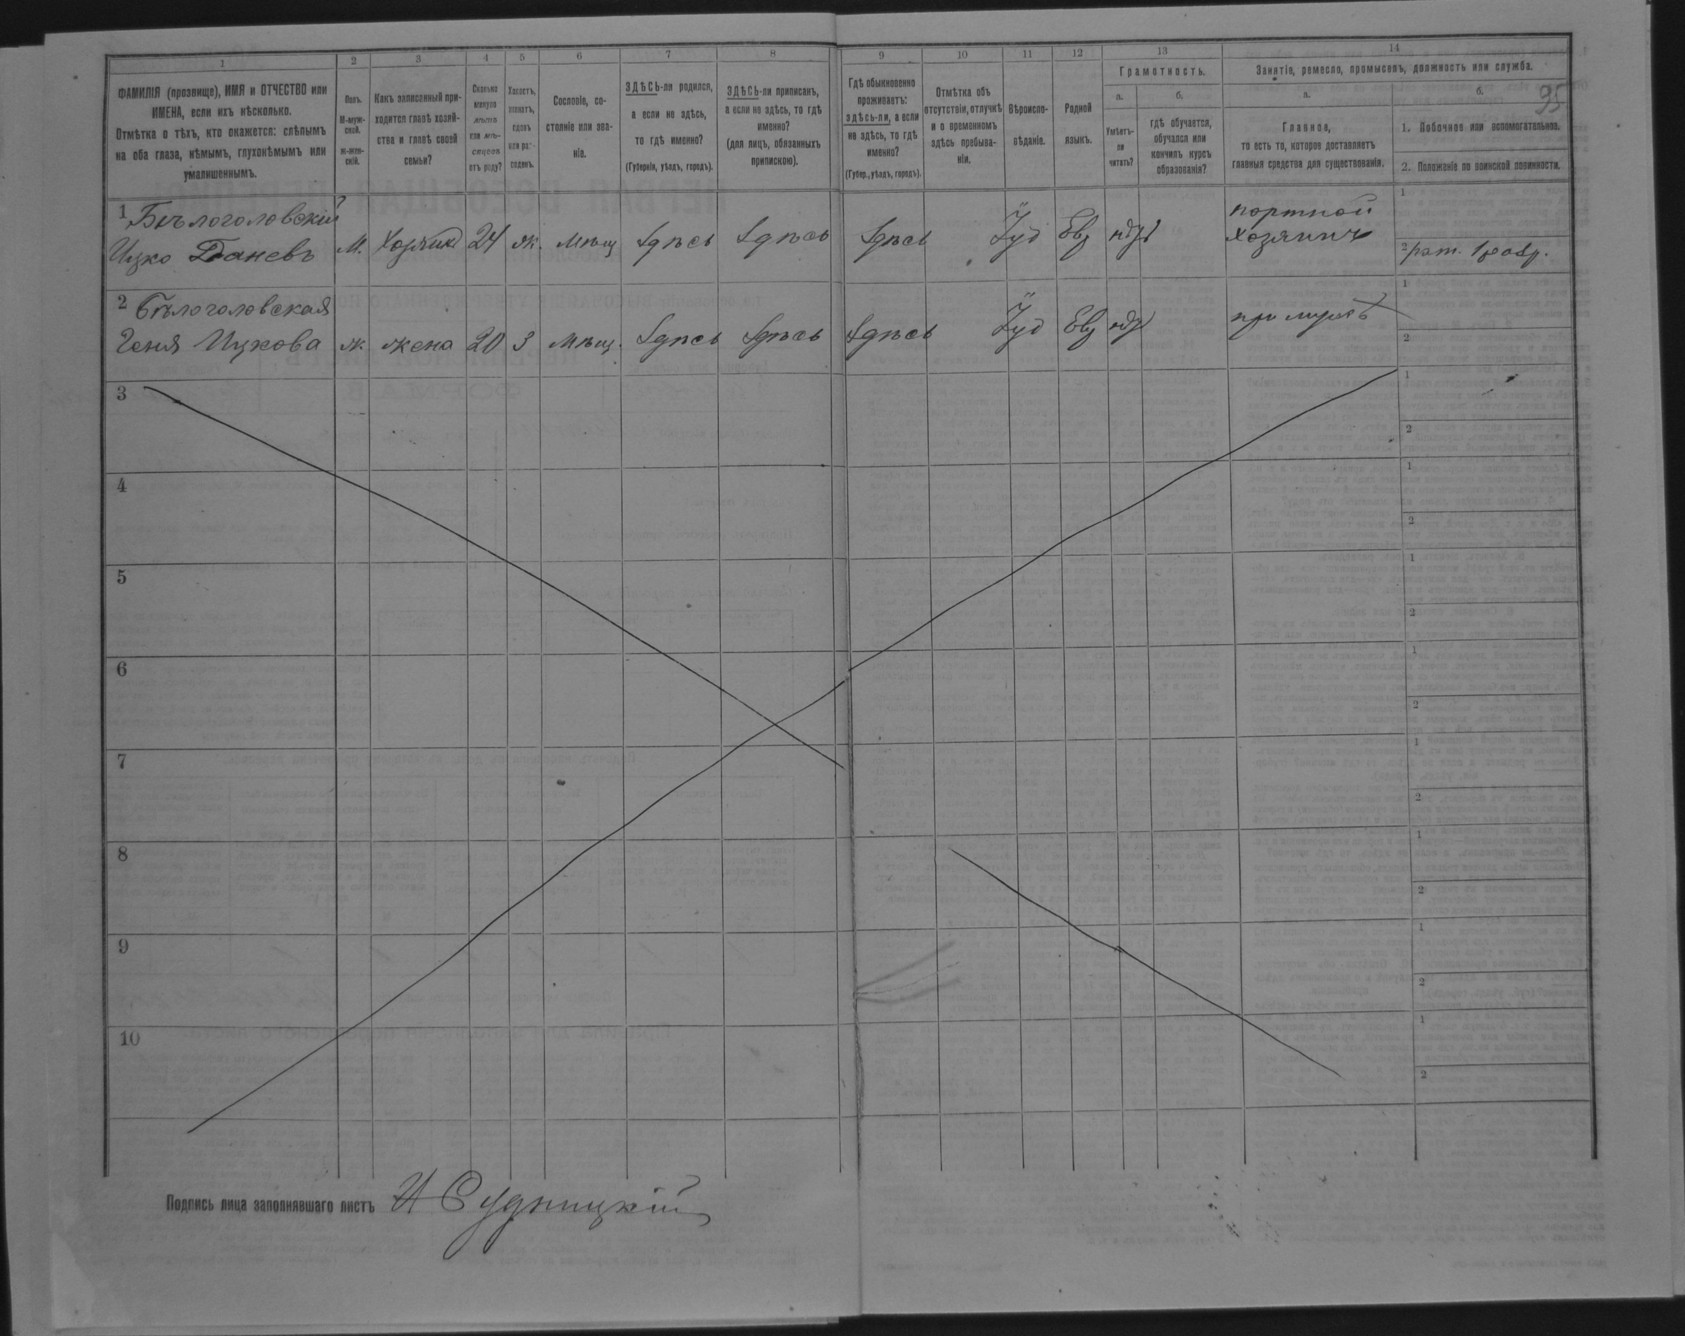 1 2 3 4 5 6 7 8 9 10 11 12 13 14
95
ФАМИЛІЯ (прозвище), ИМЯ и ОТЧЕСТВО или
ИМЕНА, если ихъ нѣсколько.
Отмѣтка о тѣхъ, кто окажется: слѣпымъ
на оба глаза, нѣмымъ, глухонѣмымъ или
умалишеннымъ.
Полъ.
М-муж-
ской.
ж-жен-
скій.
Какъ записанный при-
ходится главѣ хозяй-
ства и главѣ своей
семьи?
Сколько
минуло
лѣтъ
или мѣ-
сяцевъ
отъ роду?
Холостъ,
женатъ,
вдовъ
или ра-
зведенъ.
Сословіе, со-
стояніе или зва-
ніе.
ЗДѢСЬ-ли родился,
а если не здѣсь,
то гдѣ именно?
(Губернія, уѣздъ, городъ).
ЗДѢСЬ-ли приписанъ,
а если не здѣсь, то гдѣ
именно?
(для лицъ, обязанныхъ
припискою).
Гдѣ обыкновенно
проживаетъ:
здѣсь-ли, а если
не здѣсь, то гдѣ
именно?
(Губер., уѣздъ, городъ).
Отмѣтка объ
отсутствіи, отлучкѣ
и о временномъ
здѣсь пребыва-
ніи.
Вѣроиспо-
вѣданіе.
Родной
языкъ.
Грамотность.
а.
Умѣетъ-
ли
читать?
б.
гдѣ обучается,
обучался или
кончилъ курсъ
образованія?
Занятіе, ремесло, промыселъ, должность или служба.
а.
Главное,
то есть то, которое доставляетъ
главныя средства для существованія.
б.
1. Побочное или вспомогательное.
2. Положеніе по воинской повинности.
1 Бѣлоголовскій
Ицко М. Хозяинъ 24 ж. мѣщ Здѣсь Здѣсь Здѣсь Іуд Евр
портной
хозяинъ
1
2 рат. 1 разр.
2 Бѣлоголовская
Геня Ицкова ж. жена 20 З мѣщ. Здѣсь Здѣсь Здѣсь Іуд Евр
при мужѣ
1
2
3 1
2
4 1
2
5 1
2
6 1
2
7 1
2
8 1
2
9 1
2
10 1
2
Подпись лица заполнявшаго листъ И Судницкій